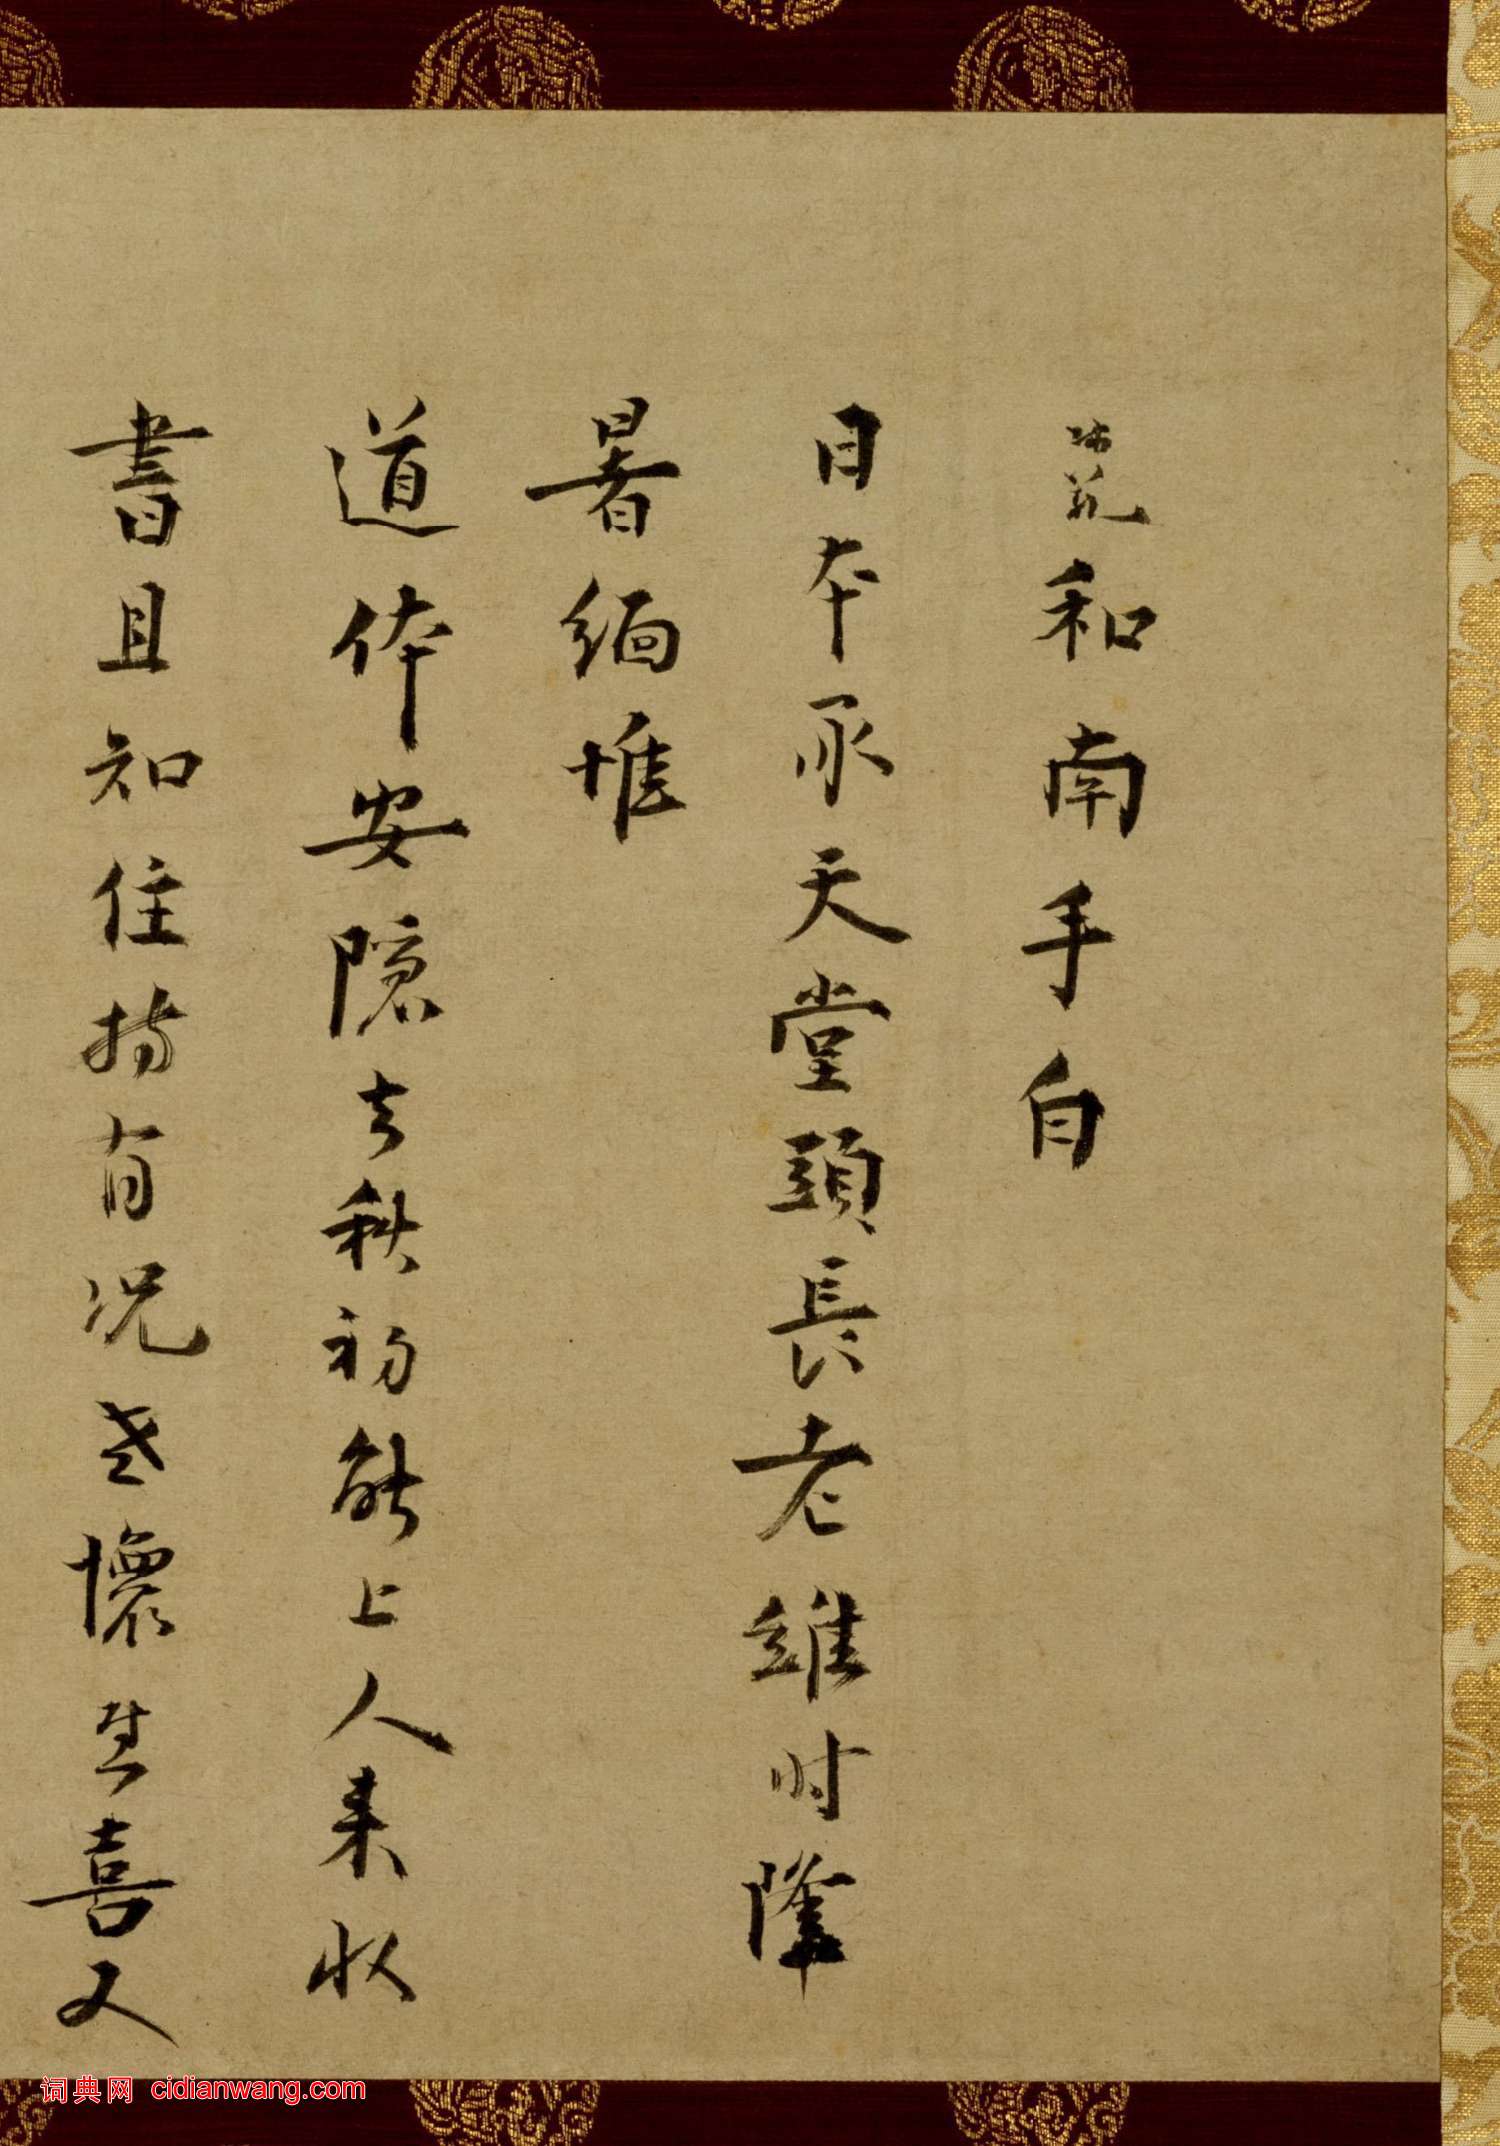 師範和南手白
日本承天堂頭長老維时隆
暑緬惟
道体安隱去秋初能上人来收
書且知住持有况老懷甚喜又
词典网 cidianwang.com